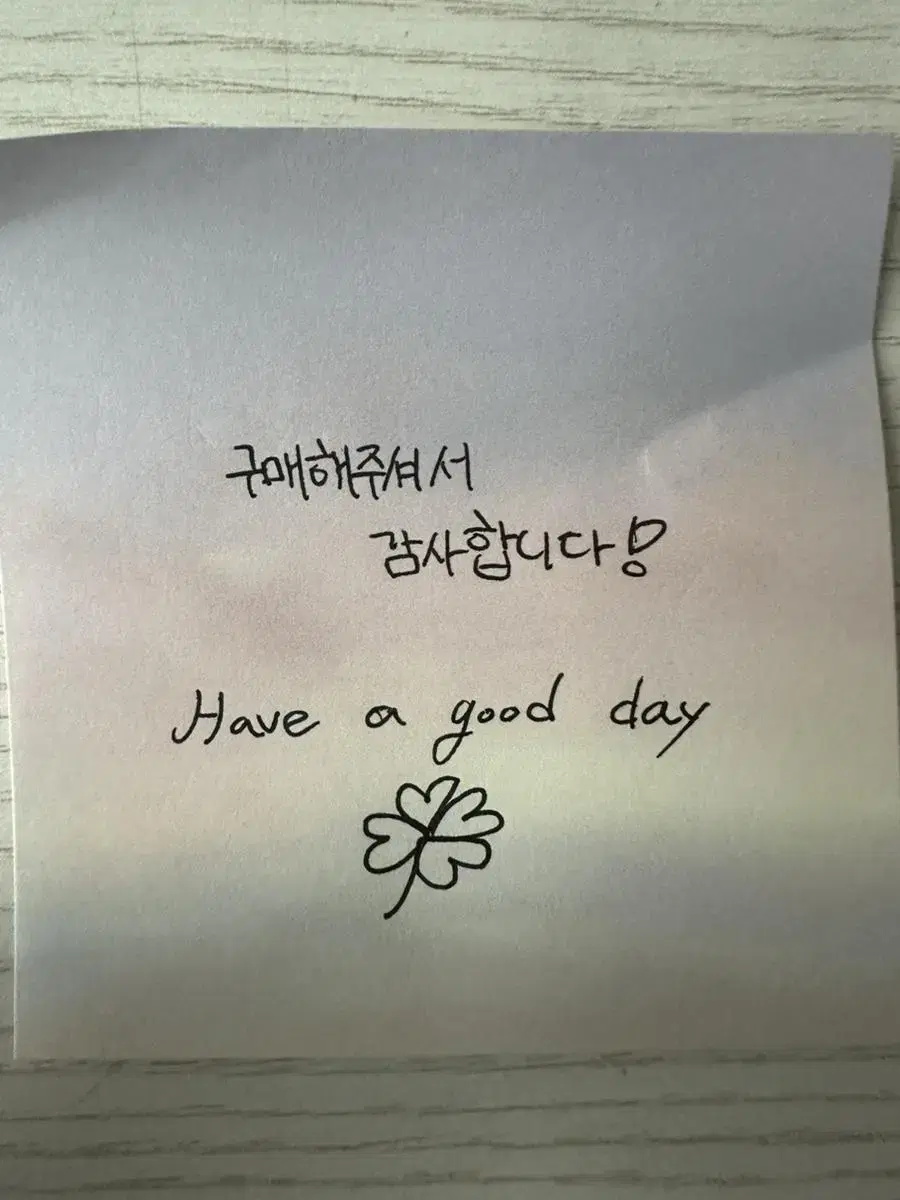 구매해주셔서
감사합니다!
Have a good day